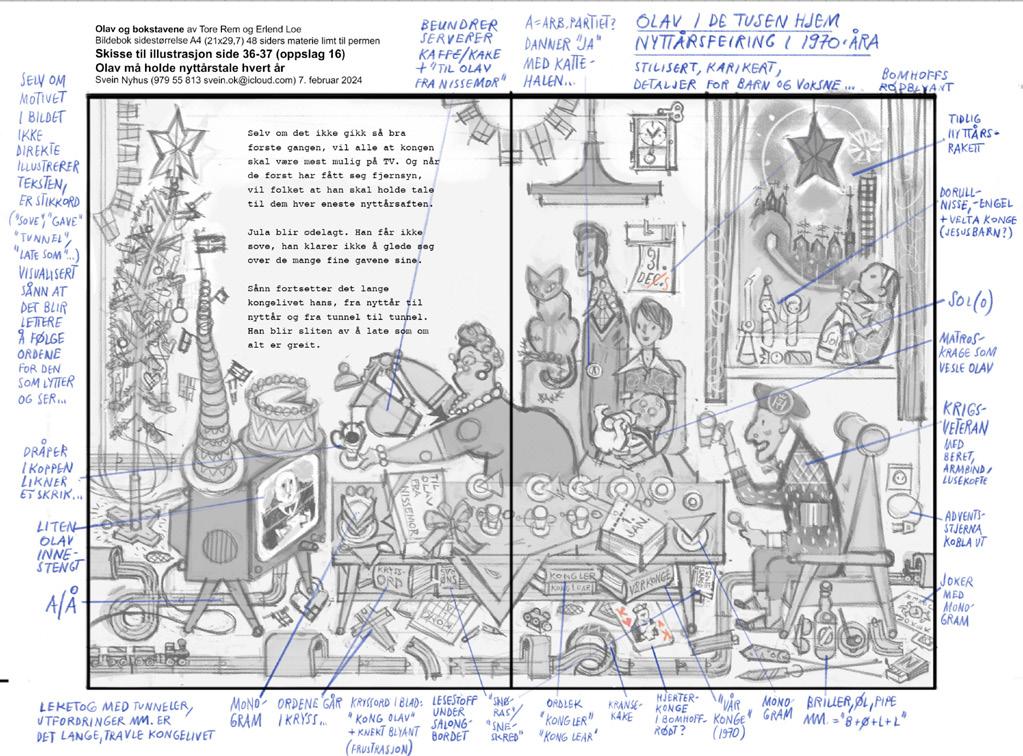 Olav og bokstavene av Tore Rem og Erlend Loe
Bildebok sidestørrelse A4 (21x29,7) 48 siders materie limt til permen
Skisse til illustrasjon side 36-37 (oppslag 16)
Olav må holde nyttårstale hvert år
Svein Nyhus (979 55 813 svein.ok@icloud.com) 7. februar 2024
BEUNDRER
SERVERER
KAFFE/KAKE
+ "TIL OLAV
FRA NISSEMOR"
A=ARB.PARTIET?
DANNER "JA"
MED KATTE-
HALEN...
OLAV I DE TUSEN HJEM
NYTTÅRSFEIRING I 1970-ÅRA
STILISERT, KARIKERT,
DETALJER FOR BARN OG VOKSNE...
BOMHOFFS
RØDBLYANT
SELV OM
MOTIVET
I BILDET
IKKE
DIREKTE
ILLUSTRERER
TEKSTEN,
ER STIKKORD
("SOVE", "GAVE"
"TUNNEL",
"LATE SOM"...)
VISUALISERT
SÅNN AT
DET BLIR
LETTERE
Å FØLGE
ORDENE
FOR DEN
SOM LYTTER
OG SER...
Selv om det ikke gikk så bra
første gangen, vil alle at kongen
skal være mest mulig på TV. Og når
de først har fått seg fjernsyn,
vil folket at han skal holde tale
til dem hver eneste nyttårsaften.
Jula blir ødelagt. Han får ikke
sove, han klarer ikke å glede seg
over de mange fine gavene sine.
Sånn fortsetter det lange
kongelivet hans, fra nyttår til
nyttår og fra tunnel til tunnel.
Han blir sliten av å late som om
alt er greit.
31
DES
TIDLIG
NYTTÅRS-
RAKETT
DORULL-
NISSE, -ENGEL
+ VELTA KONGE
(JESUSBARN?)
SOL(O)
MATROS-
KRAGE SOM
VESLE OLAV
KRIGS-
VETERAN
MED
BERET,
ARMBIND,
LUSEKOFTE
ADVENTS-
STJERNA
KOBLA UT
JOKER
MED
MONO-
GRAM
DRÅPER
I KOPPEN
LIKNER
ET SKRIK...
LITEN
OLAV
INNE-
STENGT
A/Å
TIL
OLAV
FRA
NISSEMOR
1.
JAN.
KRYSS-
ORD
KONGLER
KONG LEAR
VÅR KONGE
LEKETOG MED TUNNELER,
UTFORDRINGER MM. ER
DET LANGE, TRAVLE KONGELIVET
MONO-
GRAM
ORDENE GÅR
I KRYSS...
KRYSSORD I BLAD:
"KONG OLAV"
+ KNEKT BLYANT
(FRUSTRASJON)
LESESTOFF
UNDER
SALONG-
BORDET
"SNØ-
RAS"/
"SNE-
SKRED"
ORDLEK
"KONGLER"
"KONG LEAR"
KRANSE-
KAKE
HJERTER-
KONGE
I BOMHOFF-
RØDT?
"VÅR
KONGE"
(1970)
MONO-
GRAM
BRILLER, ØL, PIPE
MM. = "B+Ø+L+L"